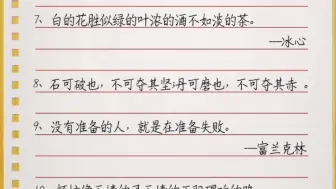 7、白的花胜似绿的叶浓的酒不如淡的茶。
—冰心
8、石可破也，不可夺其坚;丹可磨也，不可夺其赤 。
9、没有准备的人，就是在准备失败。
—富兰克林